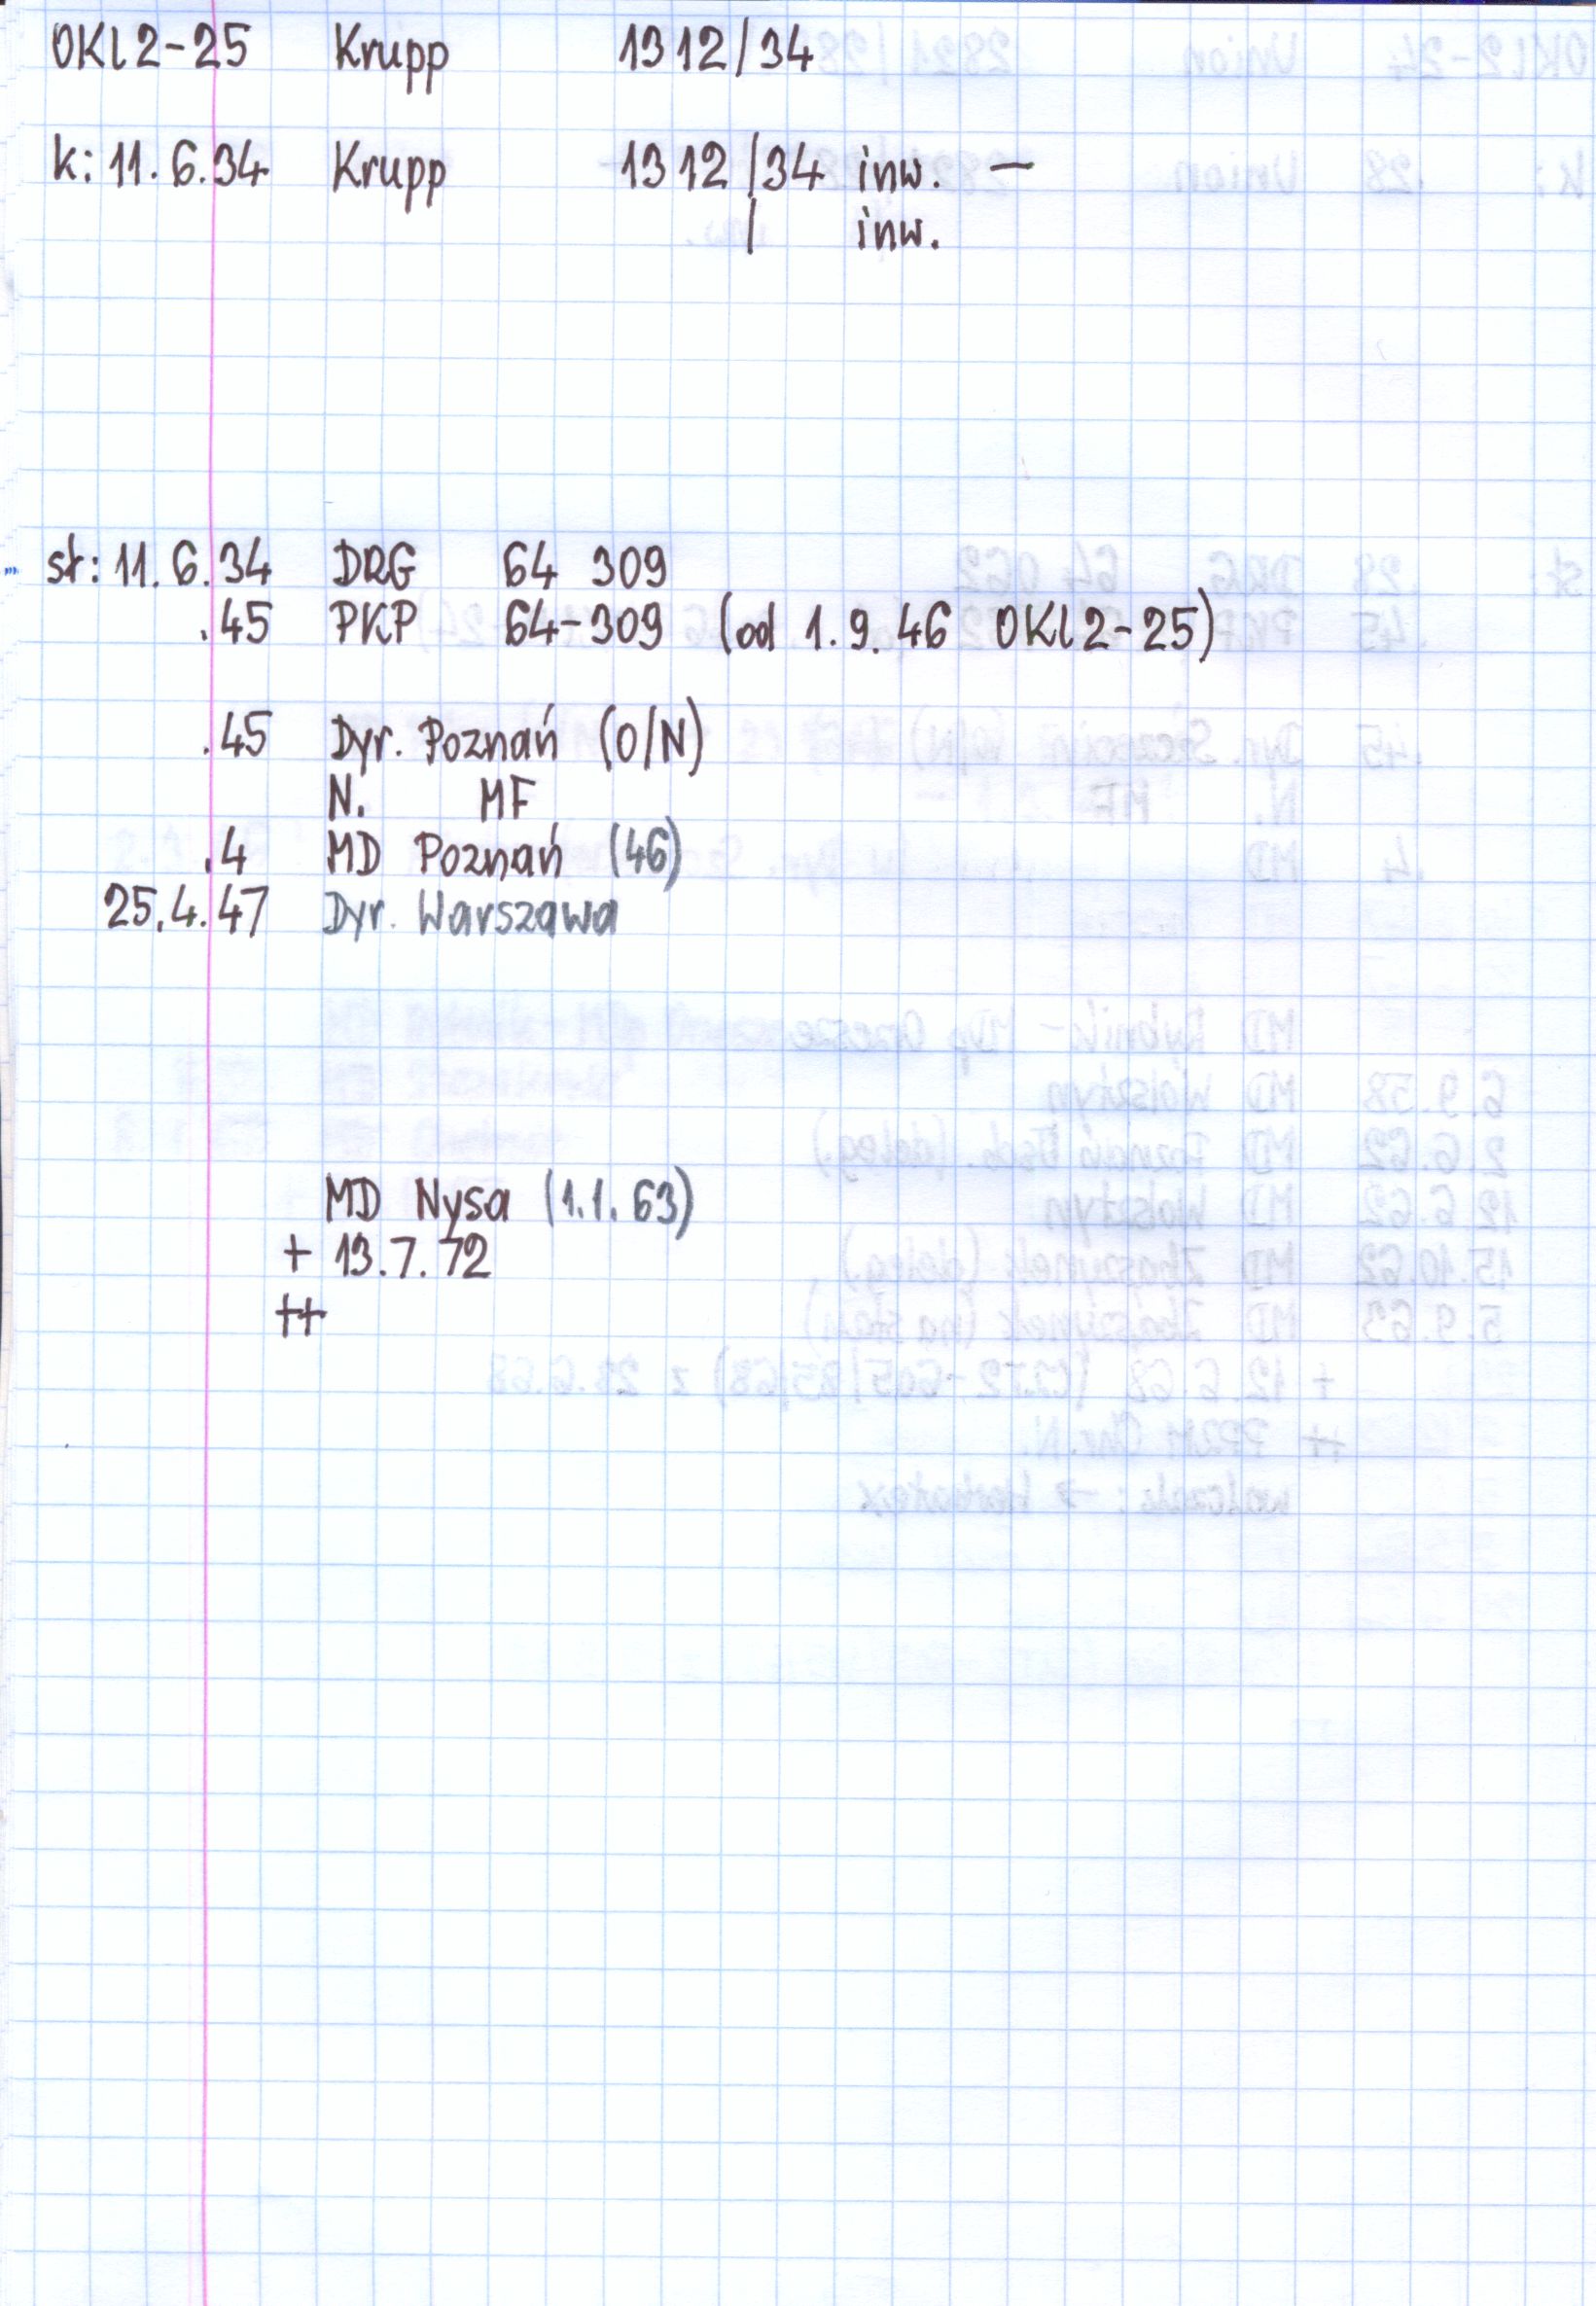 OKl2-25 Krupp 1312/34
k: 11.6.34 Krupp 1312/34 inw. —
/ inw.
st: 11.6.34 DRG 64 309
.45 PKP 64-309 (od 1.9.46 OKl2-25)
.45 Dyr. Poznań (O/N)
N. MF
.4 MD Poznań (46)
25.4.47 Dyr. Warszawa
MD Nysa (1.1.63)
+ 13.7.72
++